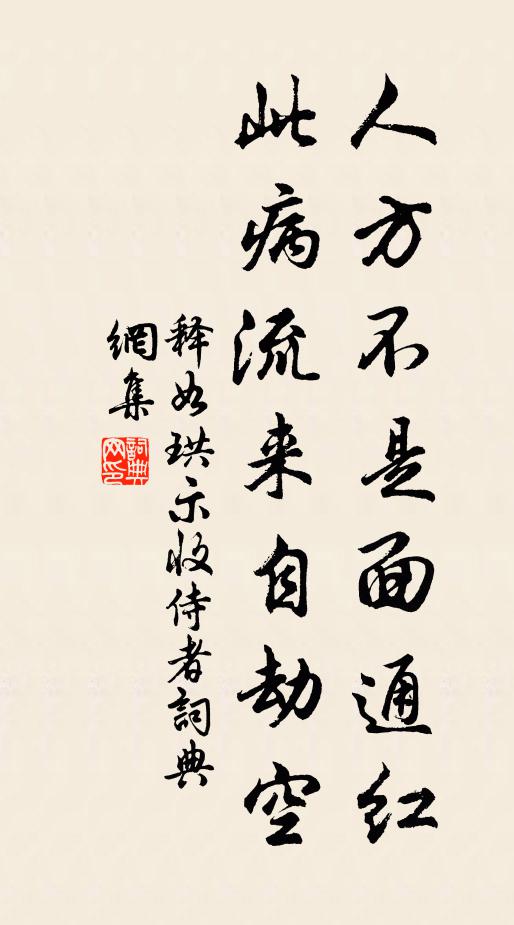 人方不是面通红
此病流来自劫空
释如珙示收侍者詞典
網集
詞典網印